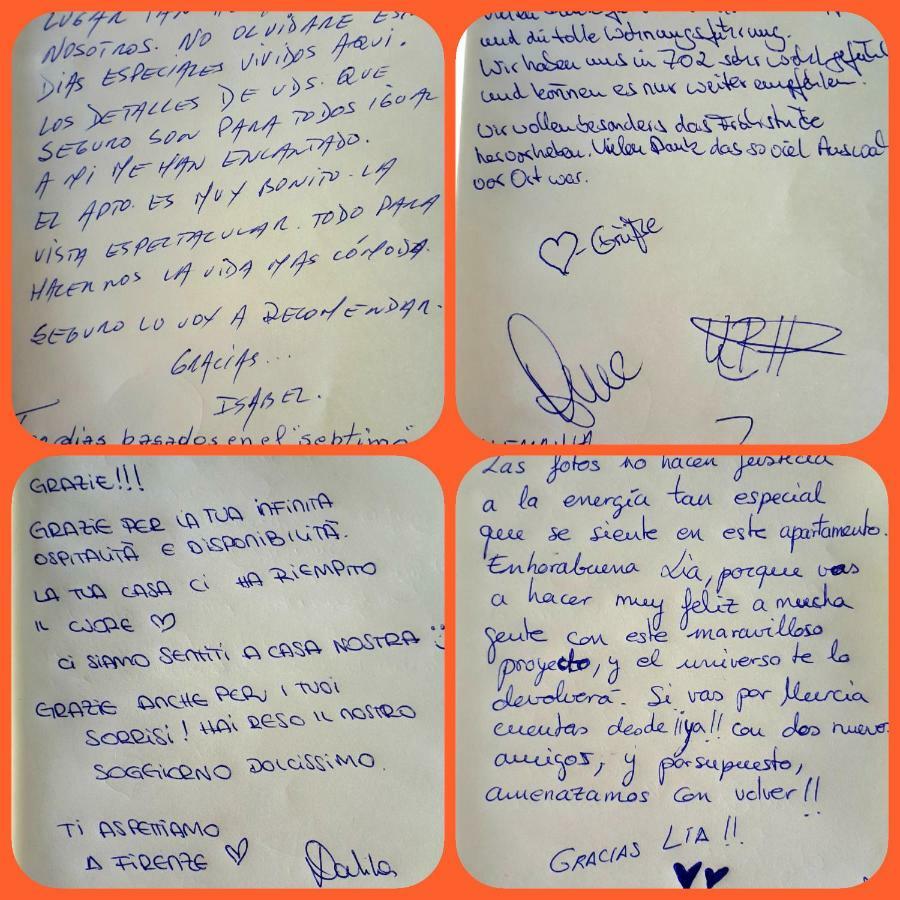 LUGAR TAN
NOSOTROS. NO OLVIDARE ES
DIAS ESPECIALES VIVIDOS AQUI.
LOS DETALLES DE UDS. QUE
SEGURO SON PARA TODOS IGUAL
A MI ME HAN ENCANTADO.
EL APTO. ES MUY BONITO. LA
VISTA ESPECTACULAR. TODO PARA
HACERNOS LA VIDA MAS CÓMODA.
SEGURO LO VOY A RECOMENDAR.
GRACIAS...
ISABEL.
dias basados en el "septimo"
und die tolle Wohnungsführung.
Wir haben uns in 702 sehr wohl gefühl
und können es nur weiter empfehlen.
Wir wollen besonders das Frühstück
hervorheben. Vielen Dank das so viel Auswahl
vor Ort war.
♡-Grüße
GRAZIE!!!
GRAZIE PER LA TUA INFINITA
OSPITALITÀ E DISPONIBILITÀ.
LA TUA CASA CI HA RIEMPITO
IL CUORE ♡
CI SIAMO SENTITI A CASA NOSTRA :)
GRAZIE ANCHE PER I TUOI
SORRISI! HAI RESO IL NOSTRO
SOGGIORNO DOLCISSIMO.
TI ASPETTIAMO
A FIRENZE ♡
Las fotos no hacen justicia
a la energía tan especial
que se siente en este apartamento.
Enhorabuena Lía, porque vas
a hacer muy feliz a mucha
gente con este maravilloso
proyecto, y el universo te lo
devolverá. Si vas por Murcia
cuentas desde ¡¡ya!! con dos nuevo
amigos, y porsupuesto,
amenazamos con volver!!
GRACIAS LIA!!
♥♥